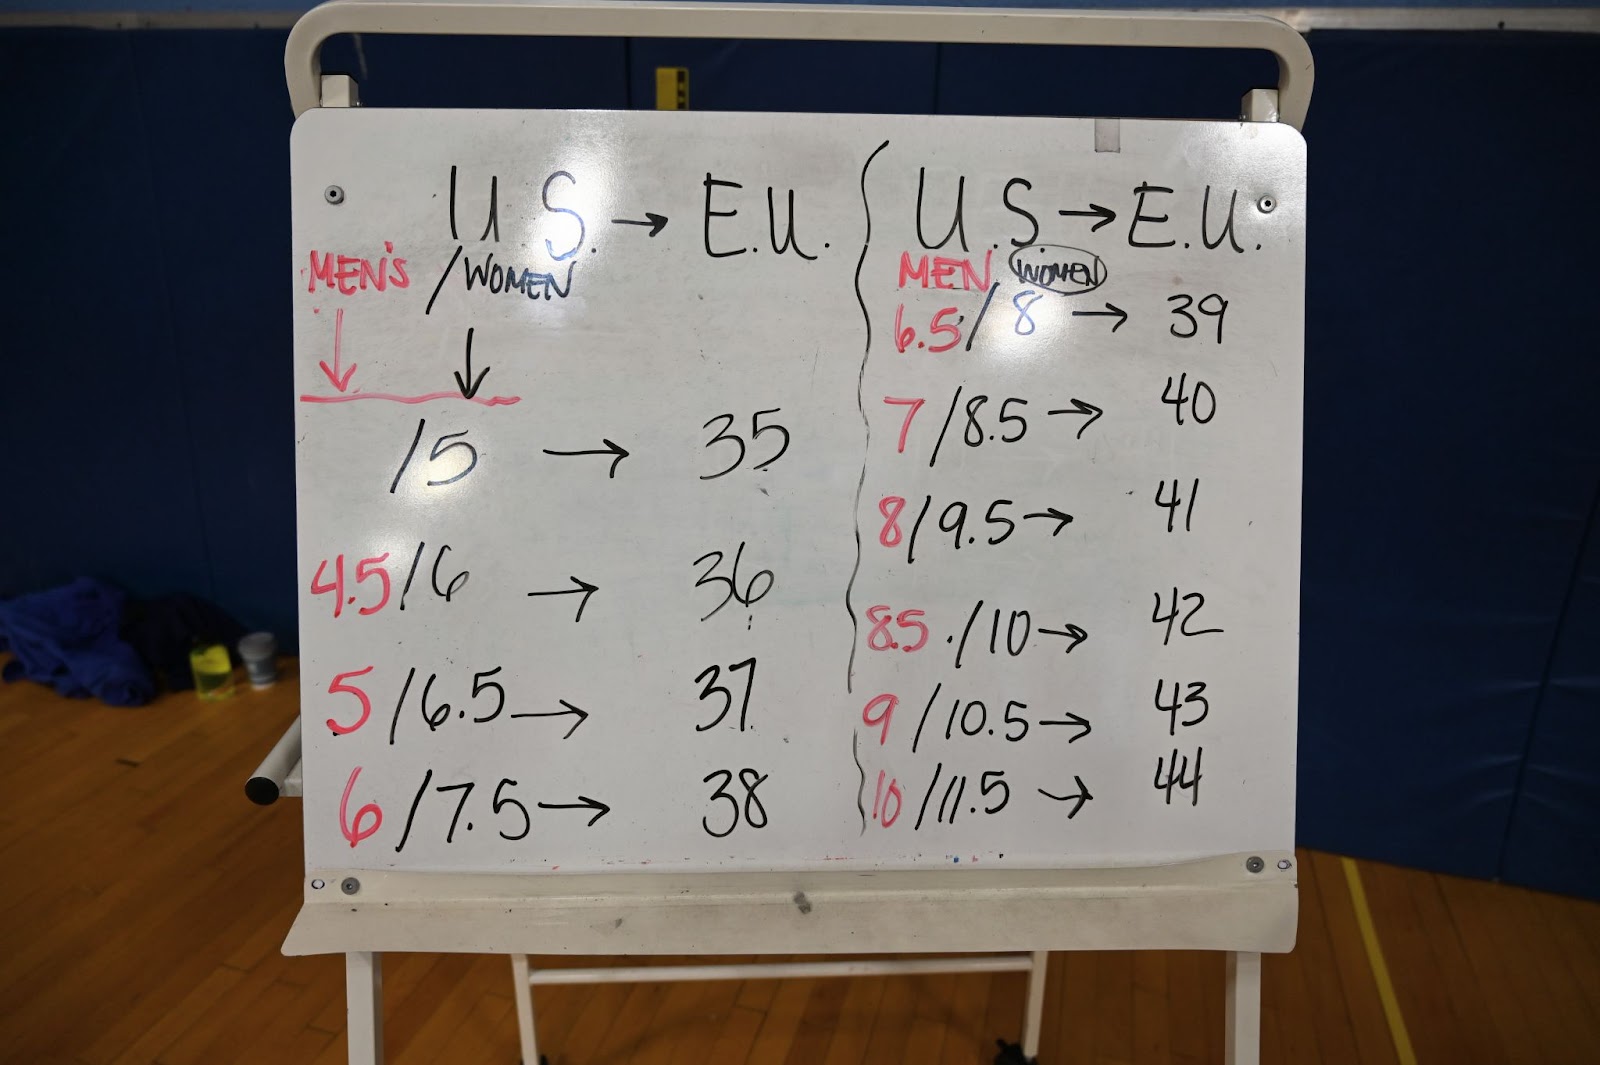 U.S. → E.U.
MEN'S / WOMEN
/5 → 35
4.5/6 → 36
5/6.5 → 37
6/7.5 → 38
U.S. → E.U.
MEN WOMEN
6.5/8 → 39
7/8.5 → 40
8/9.5 → 41
8.5 ./10 → 42
9/10.5 → 43
10/11.5 → 44